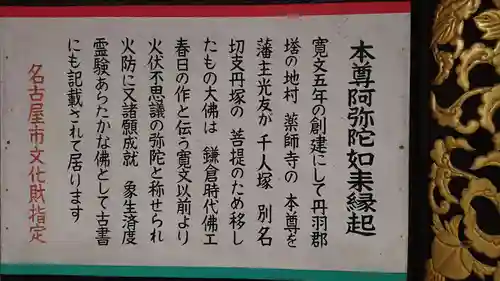 本尊阿弥陀如来縁起
寛文五年の創建にして丹羽郡
塔の地村 薬師寺の 本尊を
藩主光友が 千人塚 別名
切支丹塚の 菩提のため移し
たもの大佛は 鎌倉時代佛工
春日の作と伝う寛文以前より
火伏不思議の弥陀と称せられ
火防に又諸願成就 象生済度
霊験あらたかな佛として古書
にも記載されて居ります
名古屋市文化財指定